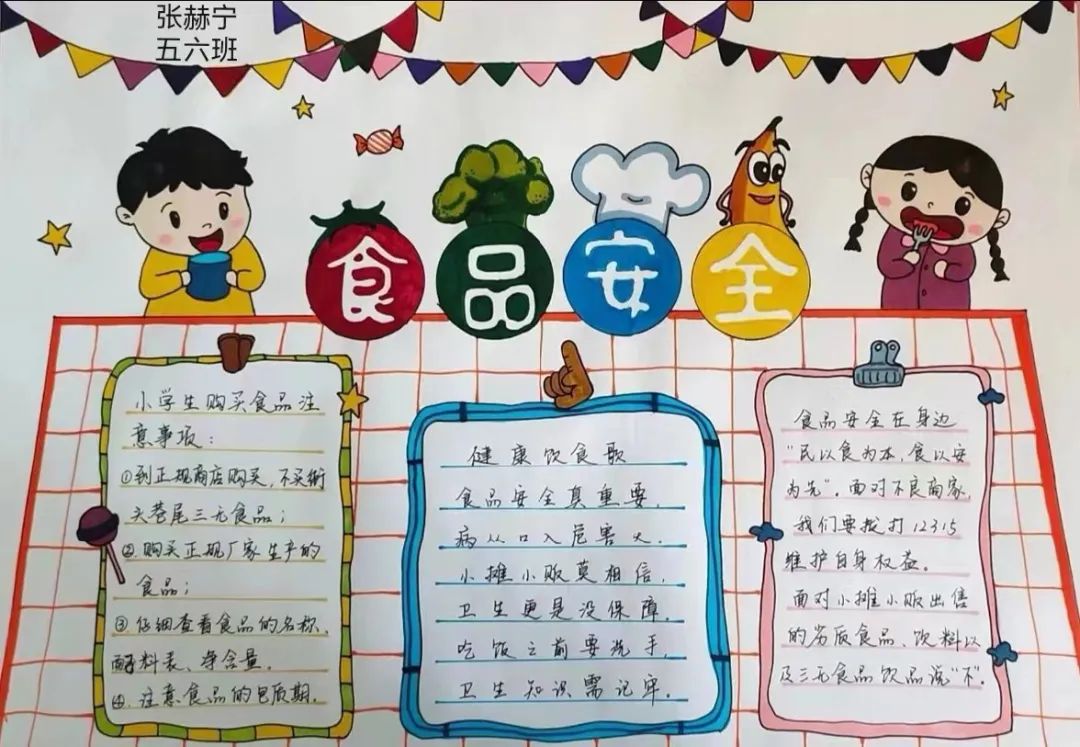 张赫宁
五六班
食品安全
小学生购买食品注
意事项：
①到正规商店购买，不买街
头巷尾三无食品；
②购买正规厂家生产的
食品；
③仔细查看食品的名称、
配料表、净含量。
④注意食品的包质期.
健康饮食歌
食品安全真重要，
病从口入危害大.
小摊小贩莫相信，
卫生更是没保障.
吃饭之前要洗手，
卫生知识需记牢.
食品安全在身边
“民以食为本，食以安
为先”。面对不良商家，
我们要拨打12315
维护自身权益。
面对小摊小贩出售
的劣质食品、饮料以
及三无食品饮品说“不”.